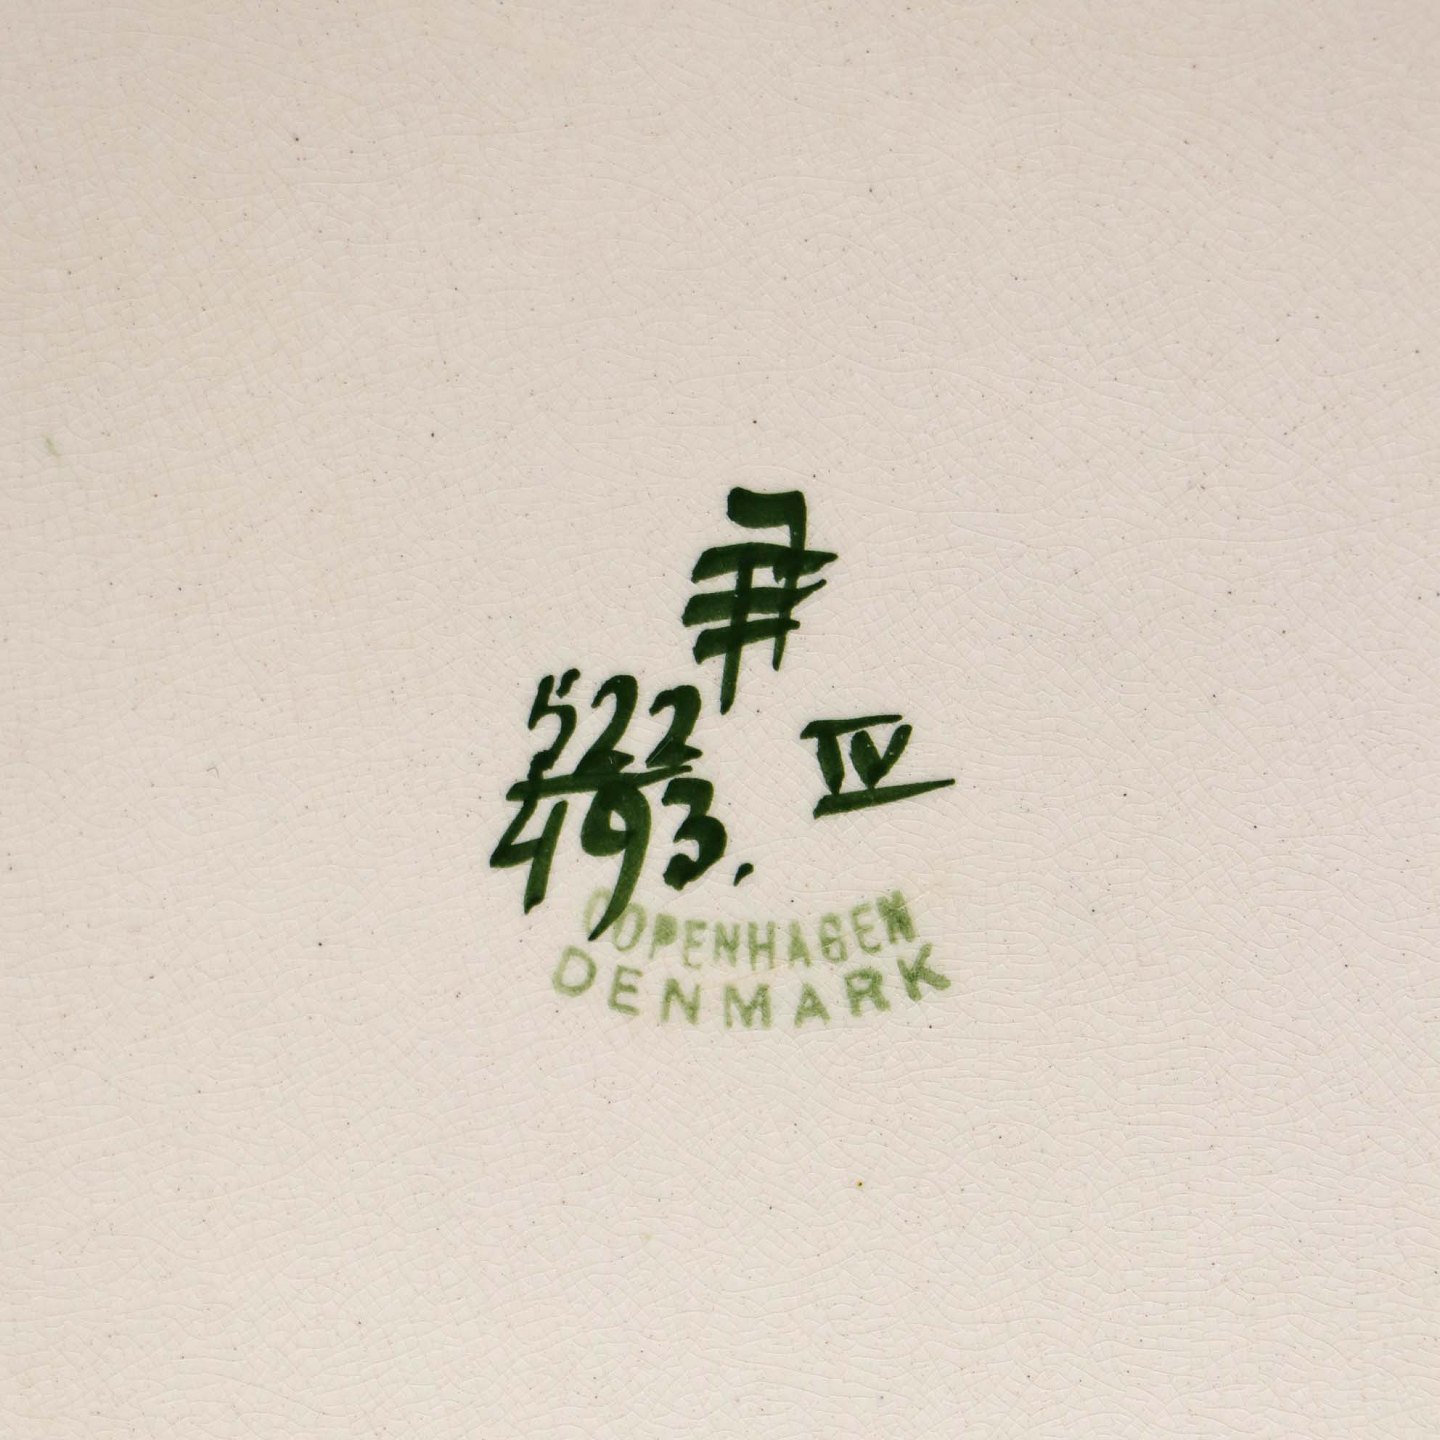 522
493.
IV
COPENHAGEN
DENMARK